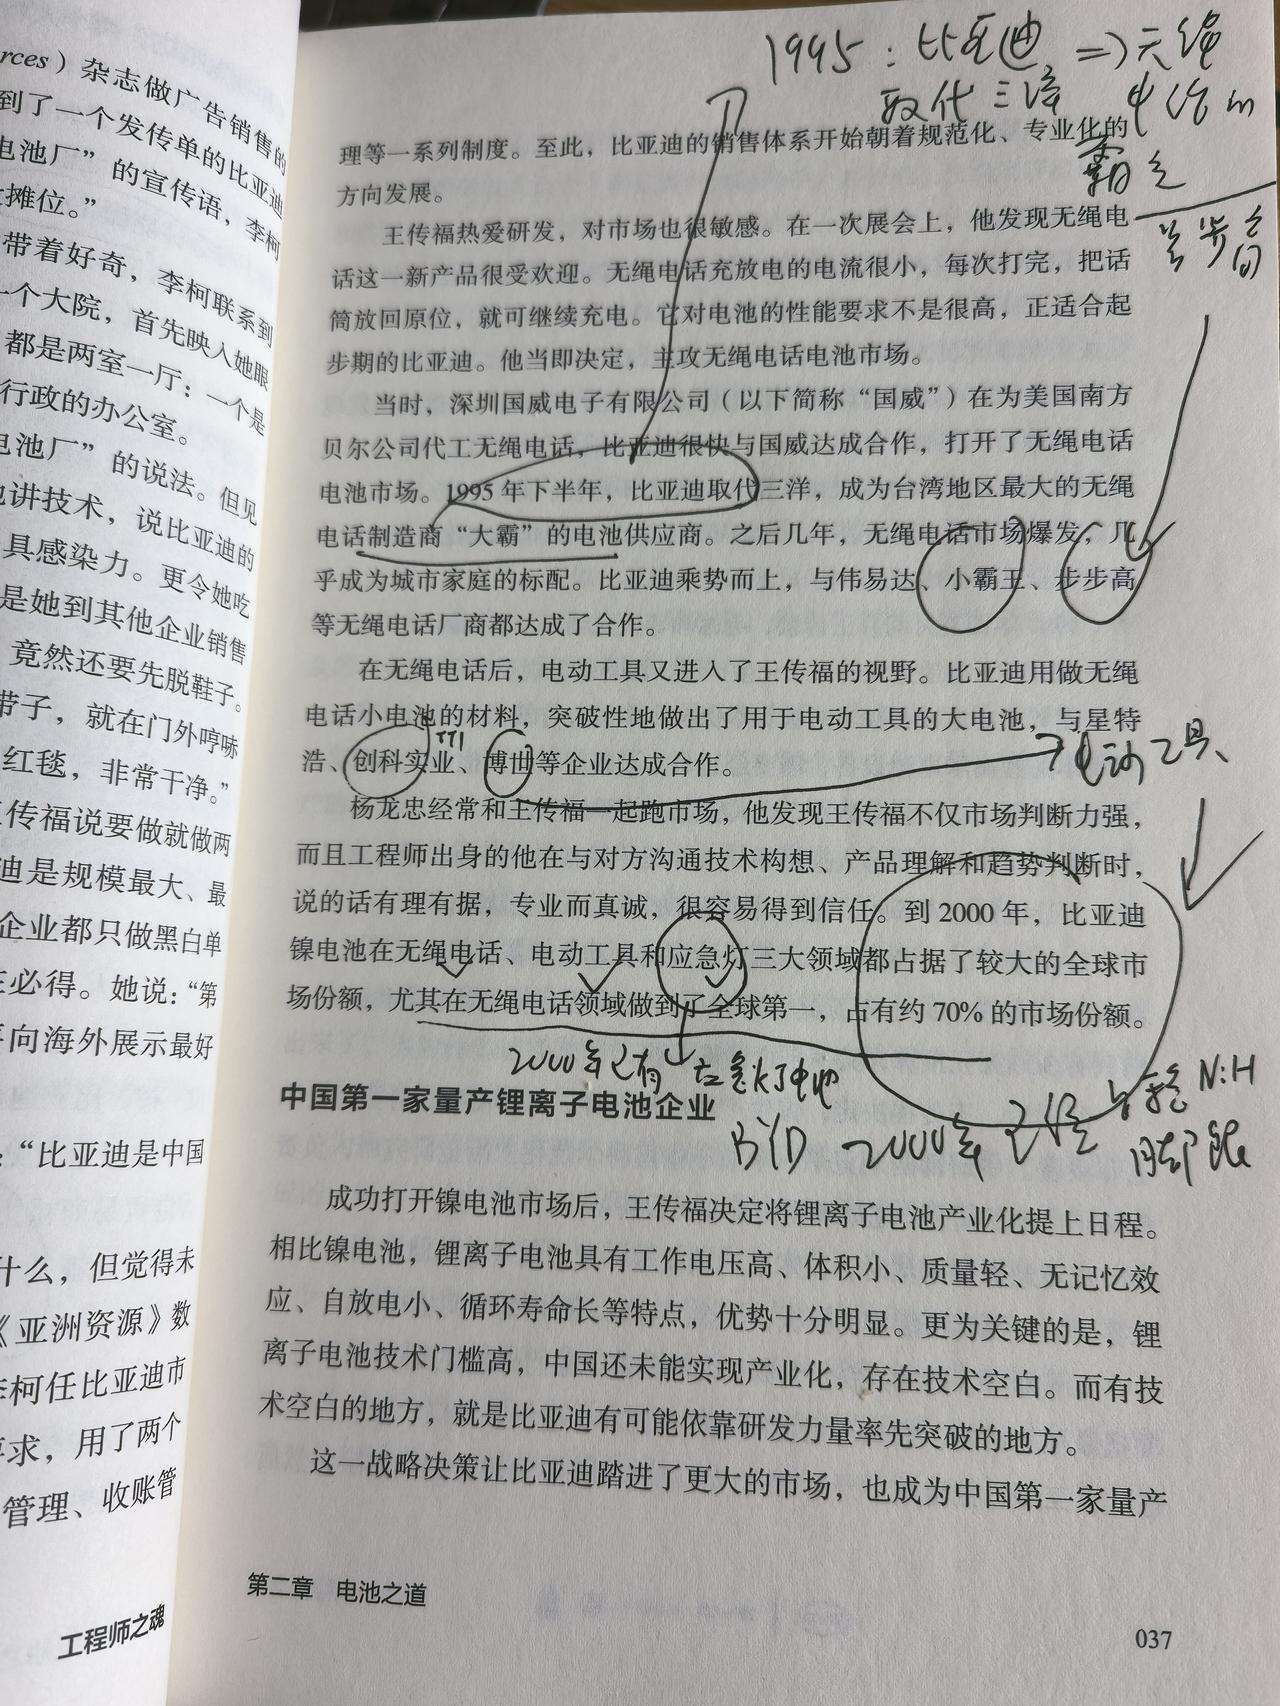 rces）杂志做广告销售的
到了一个发传单的比亚迪
电池厂”的宣传语，李柯
摊位。”
带着好奇，李柯联系到
一个大院，首先映入她眼
都是两室一厅：一个是
行政的办公室。
电池厂”的说法。但见
他讲技术，说比亚迪的
具感染力。更令她吃
是她到其他企业销售
竟然还要先脱鞋子。
带子，就在门外哼哧
红毯，非常干净。”
传福说要做就做两
迪是规模最大、最
企业都只做黑白单
在必得。她说：“第
向海外展示最好
：“比亚迪是中国
什么，但觉得未
《亚洲资源》数
李柯任比亚迪市
求，用了两个
管理、收账管
工程师之魂
1995：比亚迪 => 无绳
取代三洋 电话的
霸主
步步高
理等一系列制度。至此，比亚迪的销售体系开始朝着规范化、专业化的
方向发展。
王传福热爱研发，对市场也很敏感。在一次展会上，他发现无绳电
话这一新产品很受欢迎。无绳电话充放电的电流很小，每次打完，把话
筒放回原位，就可继续充电。它对电池的性能要求不是很高，正适合起
步期的比亚迪。他当即决定，主攻无绳电话电池市场。
当时，深圳国威电子有限公司（以下简称“国威”）在为美国南方
贝尔公司代工无绳电话，比亚迪很快与国威达成合作，打开了无绳电话
电池市场。1995年下半年，比亚迪取代三洋，成为台湾地区最大的无绳
电话制造商“大霸”的电池供应商。之后几年，无绳电话市场爆发，几
乎成为城市家庭的标配。比亚迪乘势而上，与伟易达、小霸王、步步高
等无绳电话厂商都达成了合作。
在无绳电话后，电动工具又进入了王传福的视野。比亚迪用做无绳
电话小电池的材料，突破性地做出了用于电动工具的大电池，与星特
TTI
浩、创科实业、博世等企业达成合作。
电动工具
杨龙忠经常和王传福一起跑市场，他发现王传福不仅市场判断力强，
而且工程师出身的他在与对方沟通技术构想、产品理解和趋势判断时，
说的话有理有据，专业而真诚，很容易得到信任。到2000年，比亚迪
镍电池在无绳电话、电动工具和应急灯三大领域都占据了较大的全球市
场份额，尤其在无绳电话领域做到了全球第一，占有约70%的市场份额。
2000年已有 应急灯电池
中国第一家量产锂离子电池企业
BYD 2000年已经 站稳 NiH
脚跟
成功打开镍电池市场后，王传福决定将锂离子电池产业化提上日程。
相比镍电池，锂离子电池具有工作电压高、体积小、质量轻、无记忆效
应、自放电小、循环寿命长等特点，优势十分明显。更为关键的是，锂
离子电池技术门槛高，中国还未能实现产业化，存在技术空白。而有技
术空白的地方，就是比亚迪有可能依靠研发力量率先突破的地方。
这一战略决策让比亚迪踏进了更大的市场，也成为中国第一家量产
第二章 电池之道
037